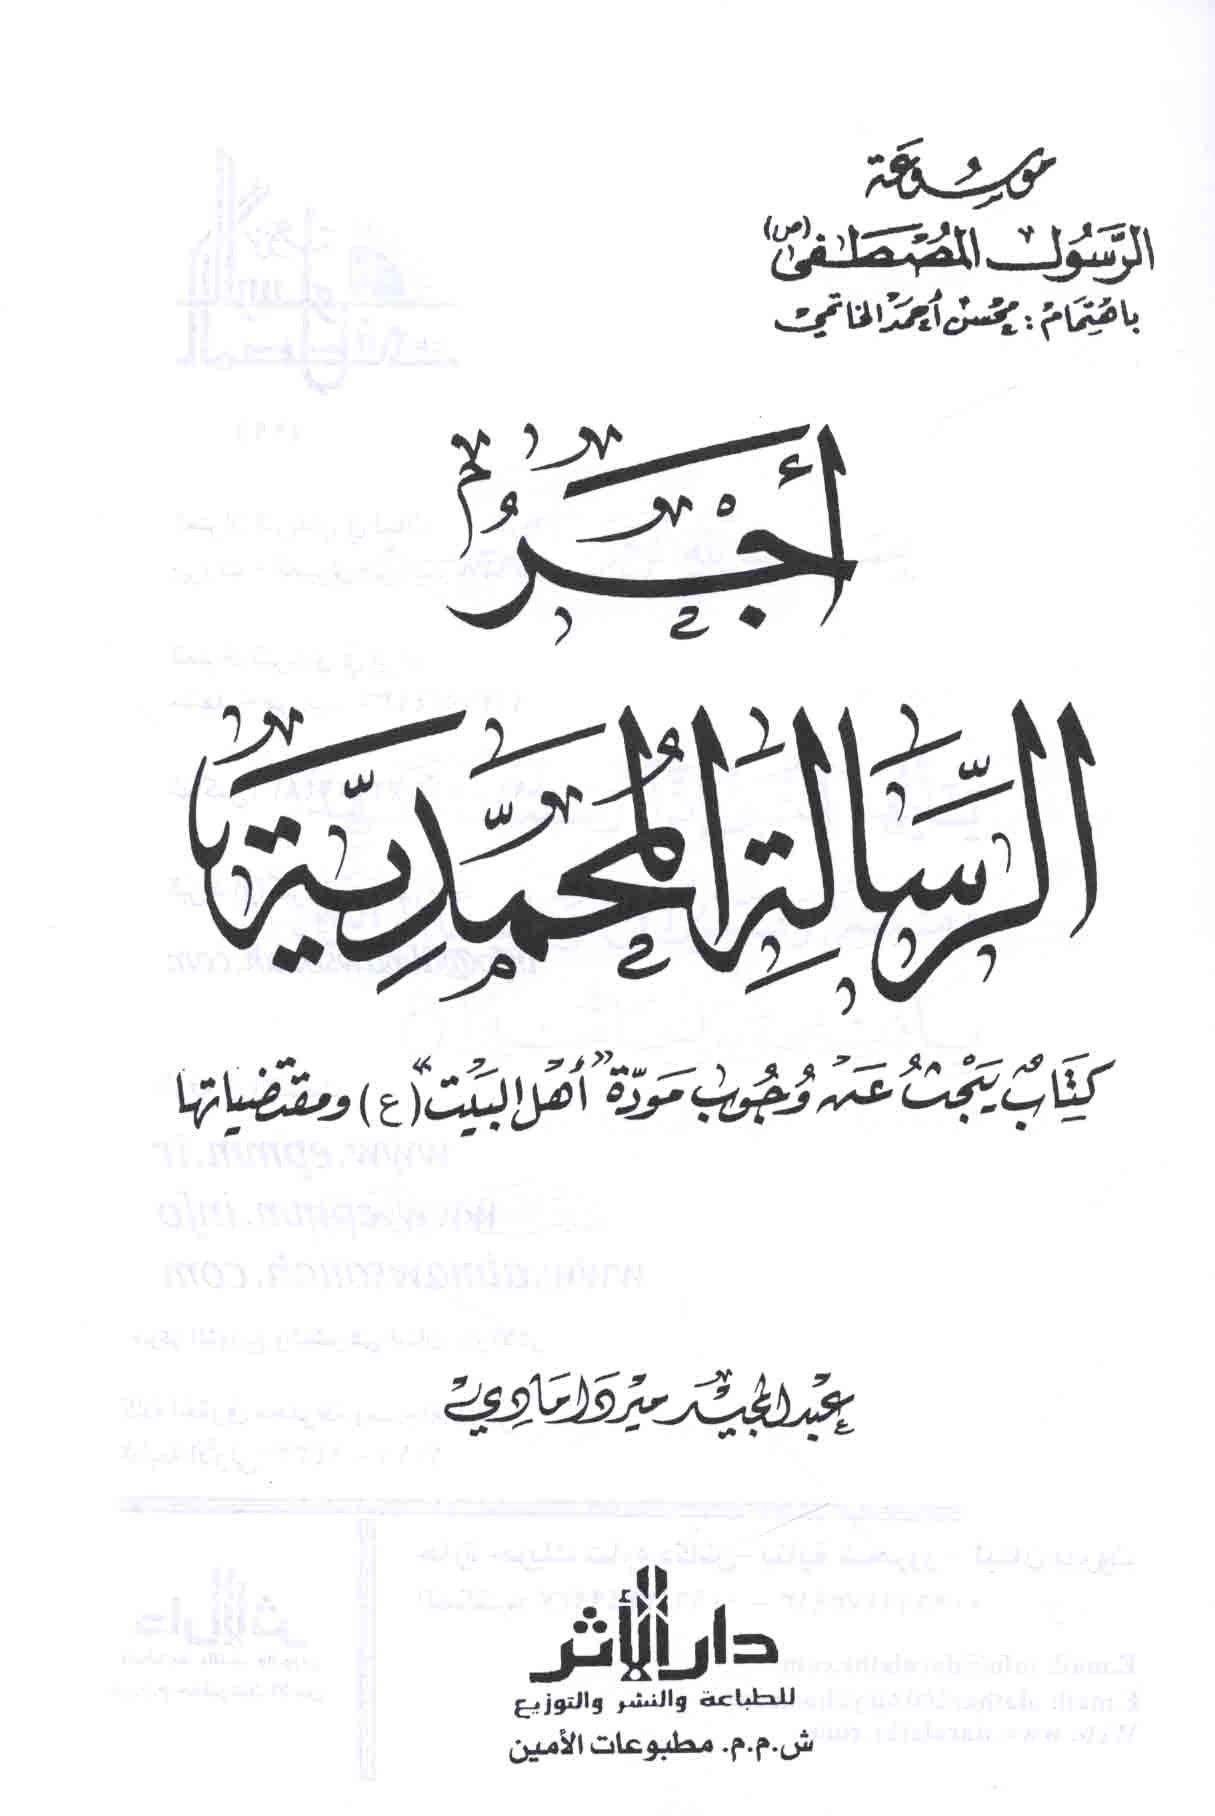 موسوعة
الرَّسُول المُصْطَفى (ص)
باهتِمَام : محسن أحمد الخاتمي
أَجْرُ
الرِّسَالَةِ المُحَمَّدِيَّة
كِتَابٌ يَبْحَثُ عَنْ وُجُوبِ مَوَدَّة "أهْل البَيْت" (ع) ومقتضياتها
عبد المجيد ميردَامَادي
دار الأثر
للطباعة والنشر والتوزيع
ش.م.م. مطبوعات الأمين